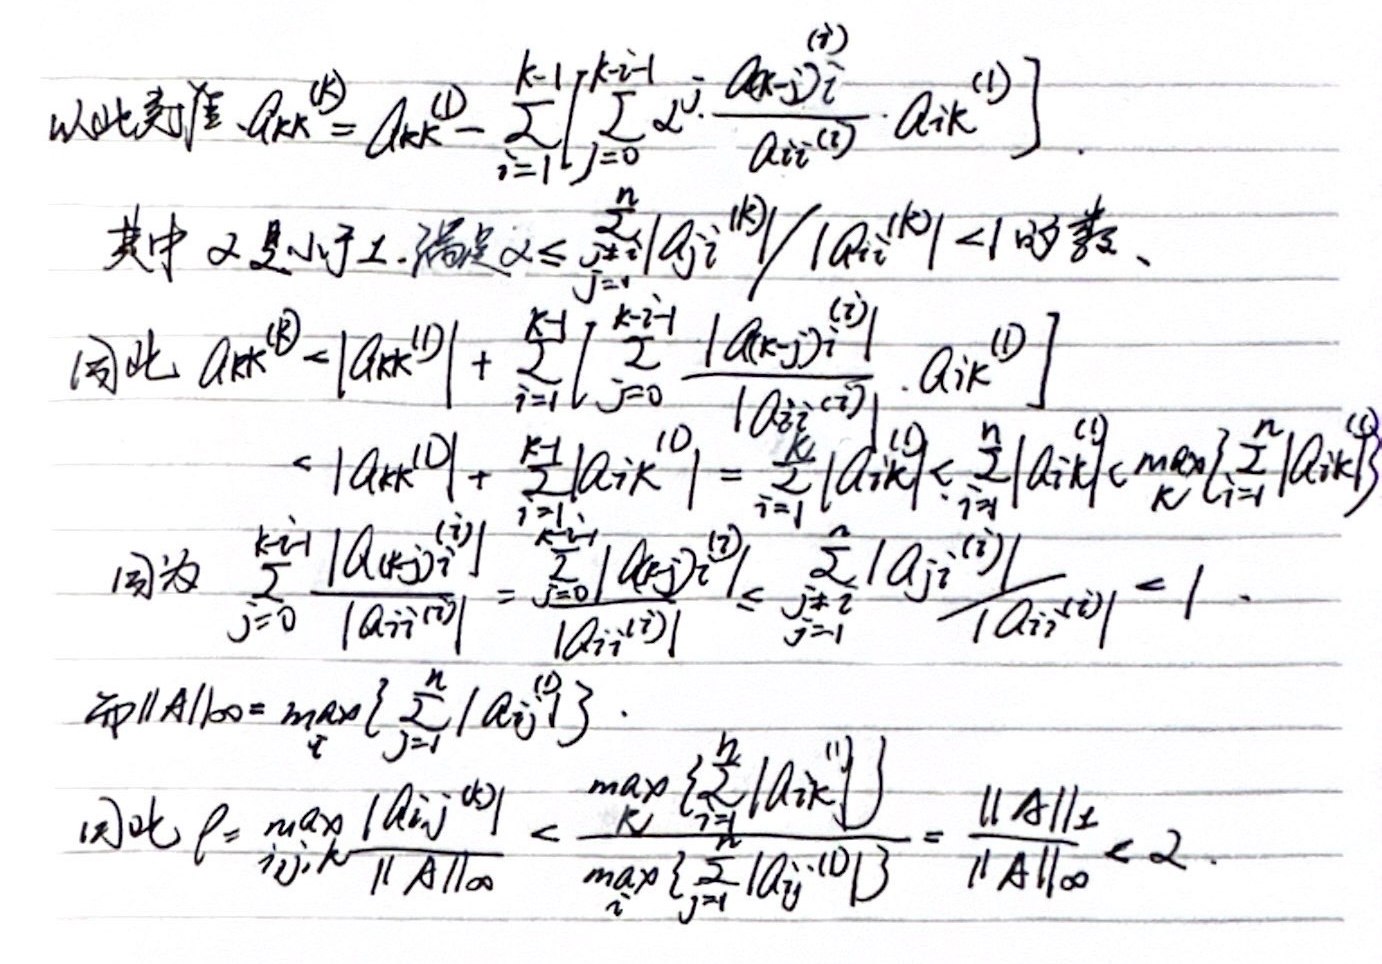 以此类推 a_{kk}^{(k)} = a_{kk}^{(1)} - \sum_{i=1}^{k-1} [ \sum_{j=0}^{k-i-1} α^j · \frac{a_{(k-j)i}^{(i)}}{a_{ii}^{(i)}} · a_{ik}^{(1)} ] .
其中 α 是小于1. 满足 α ≤ \sum_{j≠i, j=1}^{n} |a_{ji}^{(k)}| / |a_{ii}^{(k)}| < 1 的数、
因此 a_{kk}^{(k)} < |a_{kk}^{(1)}| + \sum_{i=1}^{k-1} [ \sum_{j=0}^{k-i-1} \frac{|a_{(k-j)i}^{(i)}|}{|a_{ii}^{(i)}|} . a_{ik}^{(1)} ]
< |a_{kk}^{(1)}| + \sum_{i=1}^{k-1} |a_{ik}^{(1)}| = \sum_{i=1}^{k} |a_{ik}^{(1)}| < \sum_{i=1}^{n} |a_{ik}^{(1)}| < \max_{k} { \sum_{i=1}^{n} |a_{ik}^{(1)}| }
因为 \sum_{j=0}^{k-i-1} \frac{|a_{(k-j)i}^{(i)}|}{|a_{ii}^{(i)}|} = \frac{\sum_{j=0}^{k-i-1} |a_{(k-j)i}^{(i)}|}{|a_{ii}^{(i)}|} ≤ \sum_{j≠i, j=1}^{n} |a_{ji}^{(i)}| / |a_{ii}^{(i)}| < 1 .
而 ||A||_∞ = \max_{i} { \sum_{j=1}^{n} |a_{ij}^{(1)}| } .
因此 ρ = \max_{i,j,k} \frac{|a_{ij}^{(k)}|}{||A||_∞} < \frac{\max_{k} { \sum_{i=1}^{n} |a_{ik}^{(1)}| }}{\max_{i} { \sum_{j=1}^{n} |a_{ij}^{(1)}| }} = \frac{||A||_1}{||A||_∞} < 2 .